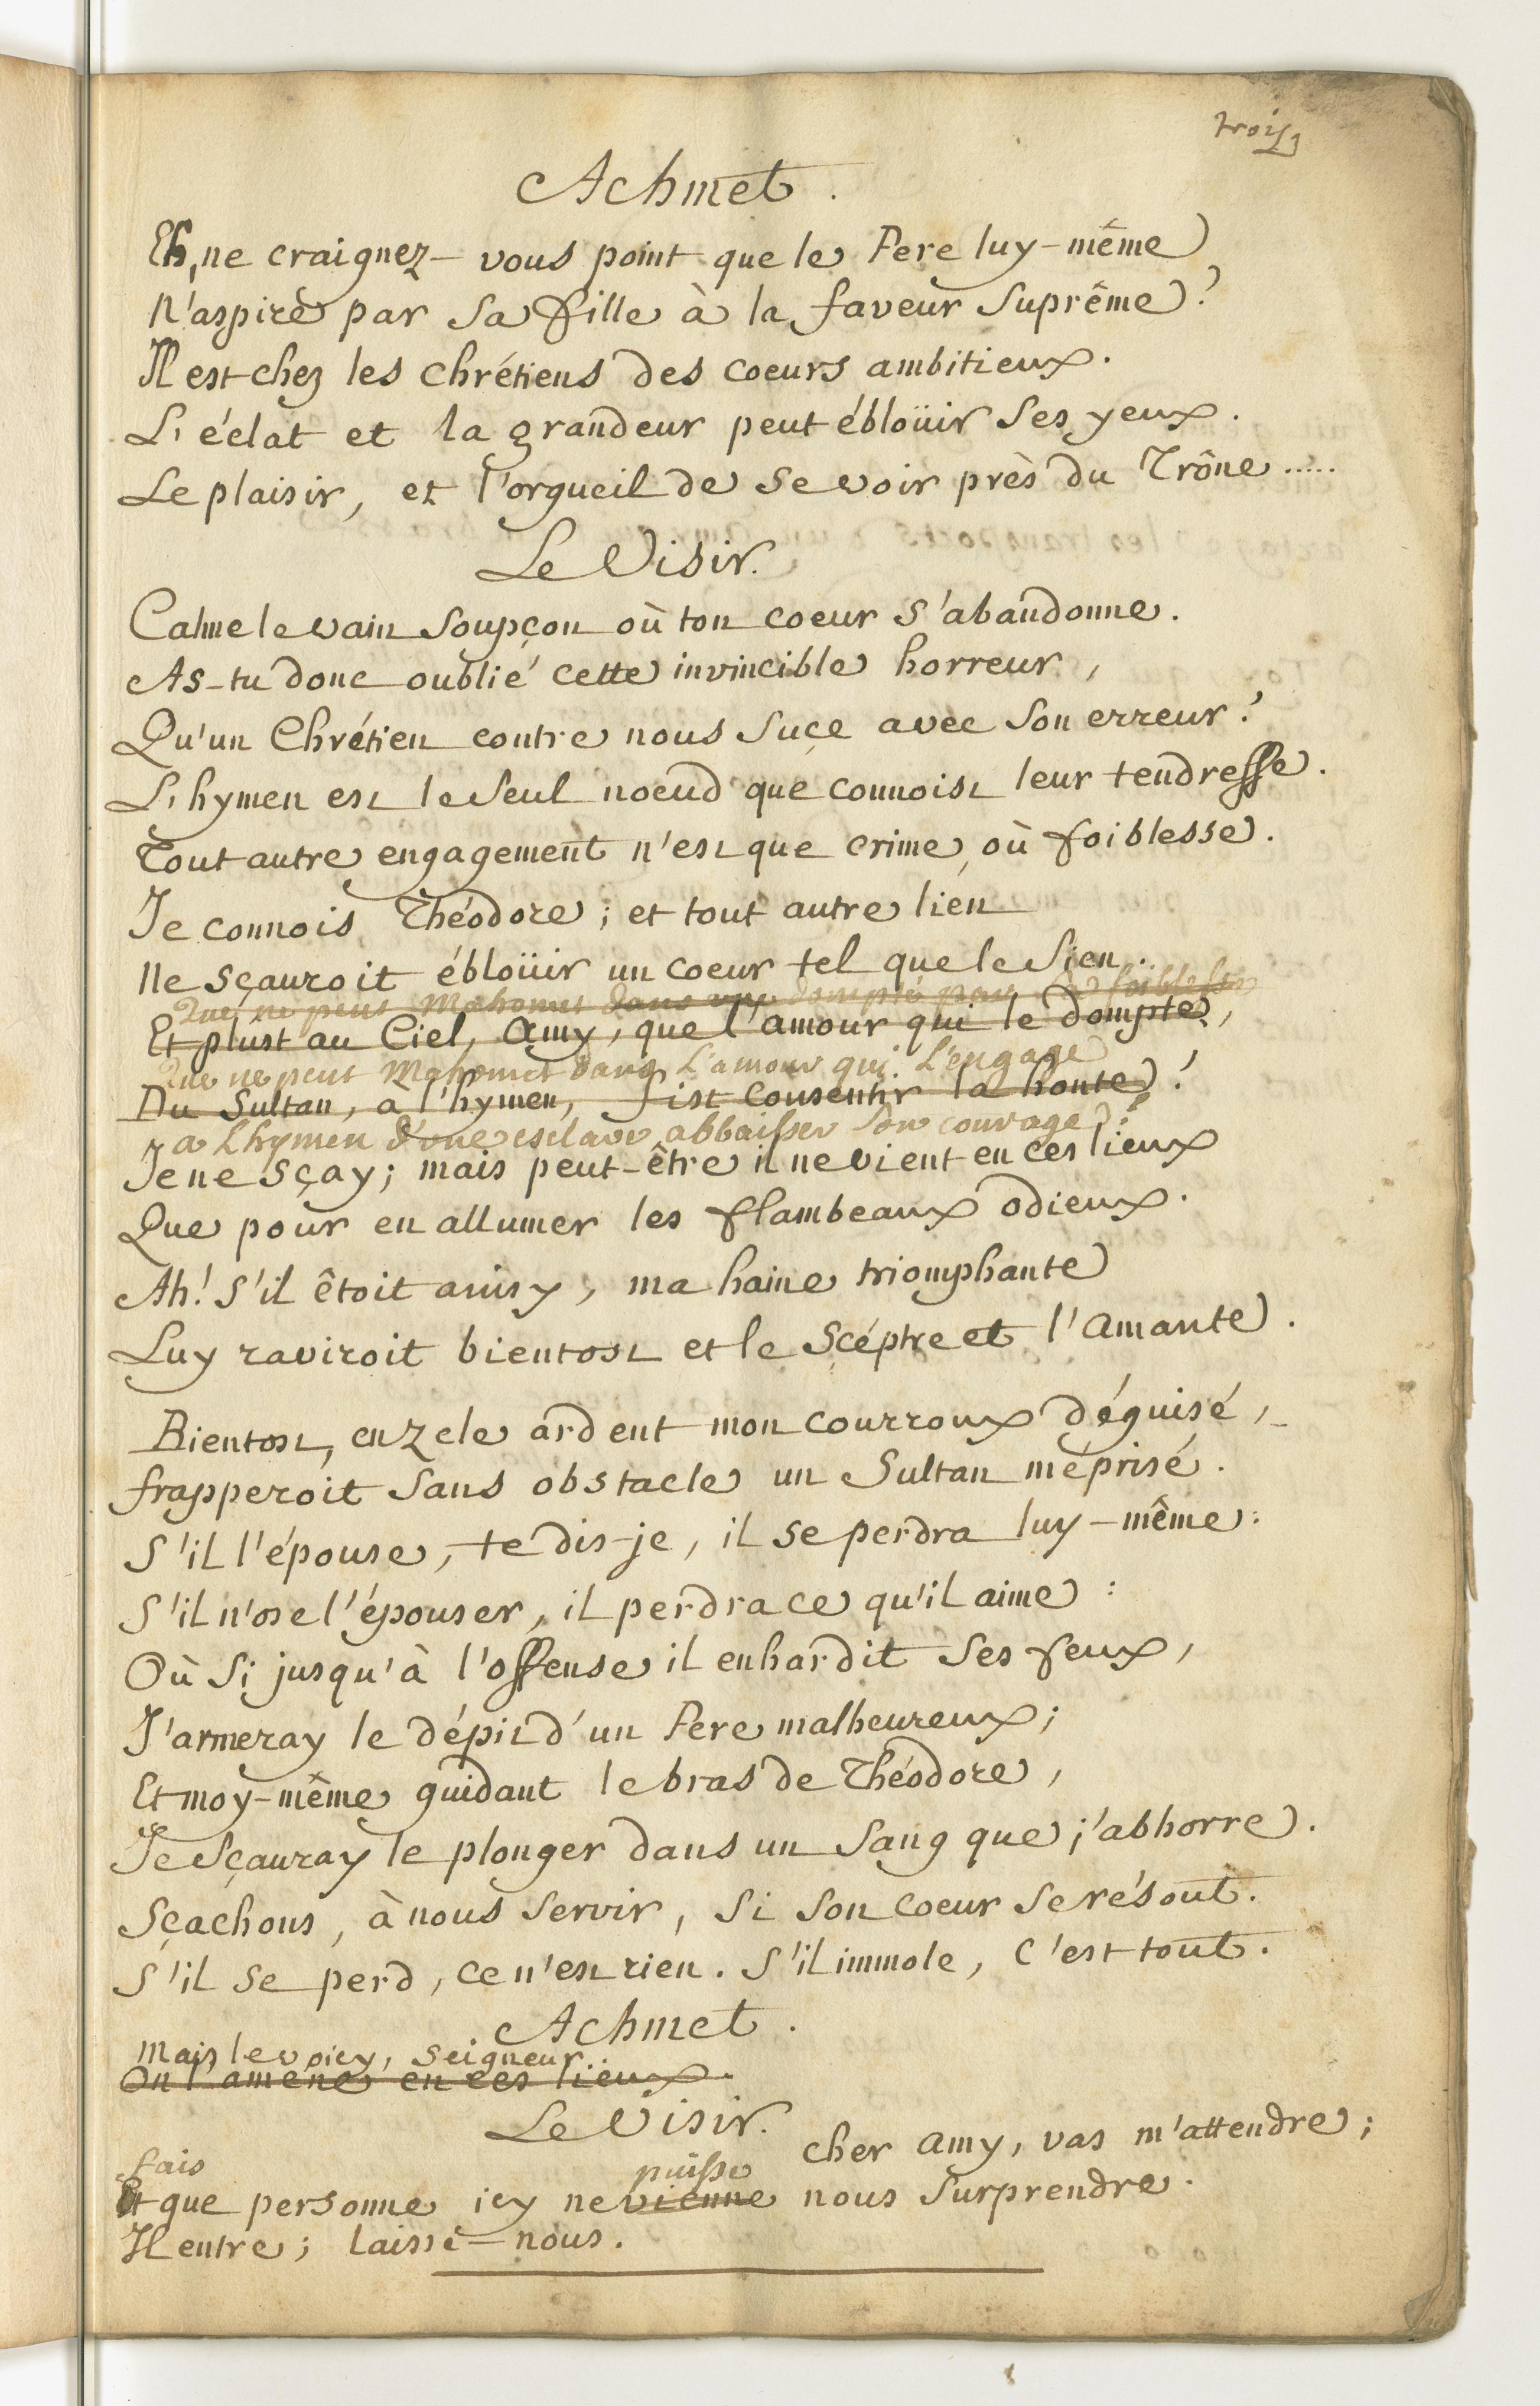 trois
Achmet.
Eh, ne craignez-vous point que le Pere luy-même
N'aspire par sa fille à la faveur Suprême?
Il est chez les chrétiens des coeurs ambitieux.
L'éclat et la grandeur peut éblouïr Ses yeux.
Le plaisir, et l'orgueil de se voir près du Trône.....
Le Visir.
Calme le vain Soupçon où ton coeur s'abandonne.
As-tu donc oublié cette invincible horreur,
Qu'un Chrétien contre nous Suçe avec Son erreur?
L'hymen est le Seul noeud que connoist leur tendresse.
Tout autre engagement n'est que crime, où foiblesse.
Je connois Théodore; et tout autre lien
Ne sçauroit éblouïr un coeur tel que le Sien.
Que ne peut Mahomet dans dompté par foiblesse
Et plust au Ciel, Amy, que l'amour qui le dompte,
Que ne peut Mahomet dans L'amour qui L'engage
Du Sultan, à l'hymen, fist consentir la honte!
a Lhymen d'une esclave abbaisser Son courage?
Je ne sçay; mais peut-être il ne vient en ces lieux
Que pour en allumer les flambeaux odieux.
Ah! s'il êtoit ainsy, ma haine triomphante
Luy raviroit bientost et le Scéptre et l'Amante.
Bientost, en zele ardent mon courroux déguisé,
frapperoit Sans obstacle un Sultan méprisé.
S'il l'épouse, te dis-je, il se perdra luy-même:
S'il n'ose l'épouser, il perdra ce qu'il aime:
Où Si jusqu'à l'offense il enhardit Ses feux,
J'armeray le dépit d'un Pere malheureux;
Et moy-même guidant le bras de Théodore,
Je Sçauray le plonger dans un Sang que j'abhorre.
Sçachons, à nous Servir, Si Son coeur Se résout.
S'il se perd, ce n'est rien. S'il immole, c'est tout.
Achmet.
Mais le voicy, Seigneur.
On l'amene en ces lieux.
Le Visir.
cher Amy, vas m'attendre;
fais puisse
Et que personne icy ne vienne nous Surprendre.
Il entre; laisse-nous.